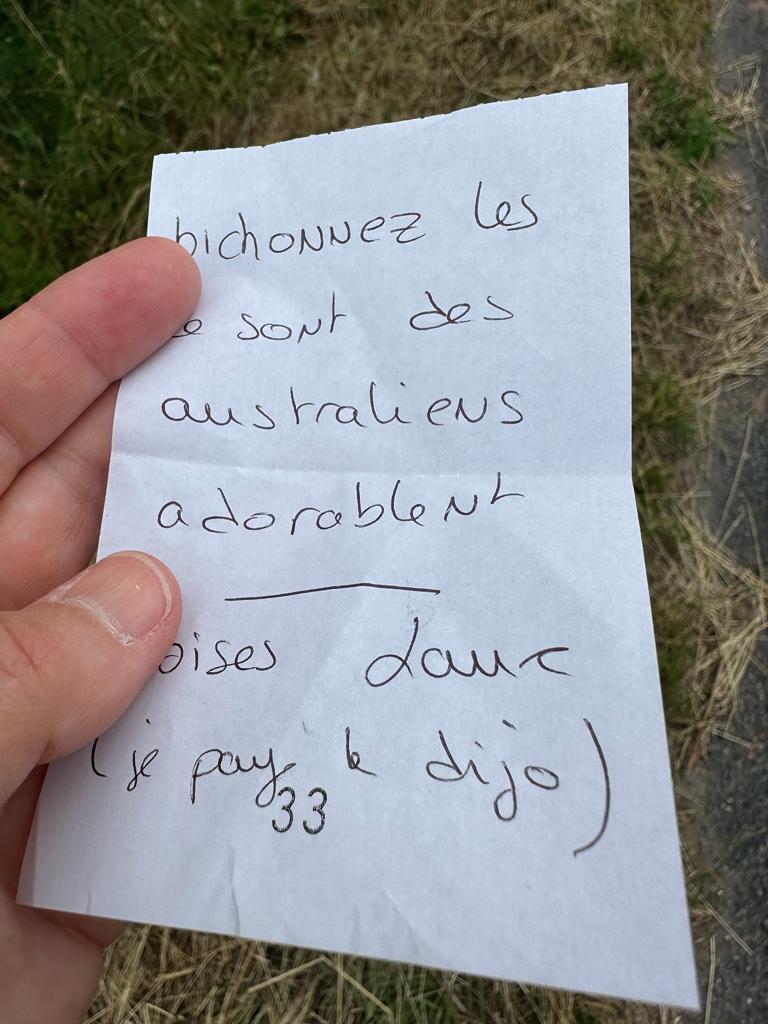 bichonnez les
ce sont des
australiens
adorablent
oises
(je paye le dijo)
33